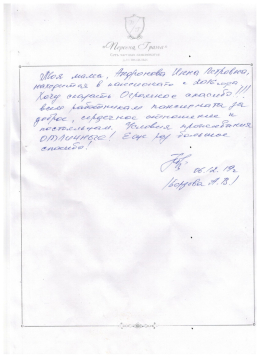 "Первая Грань"
Моя мама, Андронова Инна Петровна,
находится в пансионате с
Хочу сказать Огромное спасибо!!!
всем работникам пансионата за
доброе, сердечное отношение к
постояльцам. Условия проживания
отличные! Еще раз большое
спасибо!